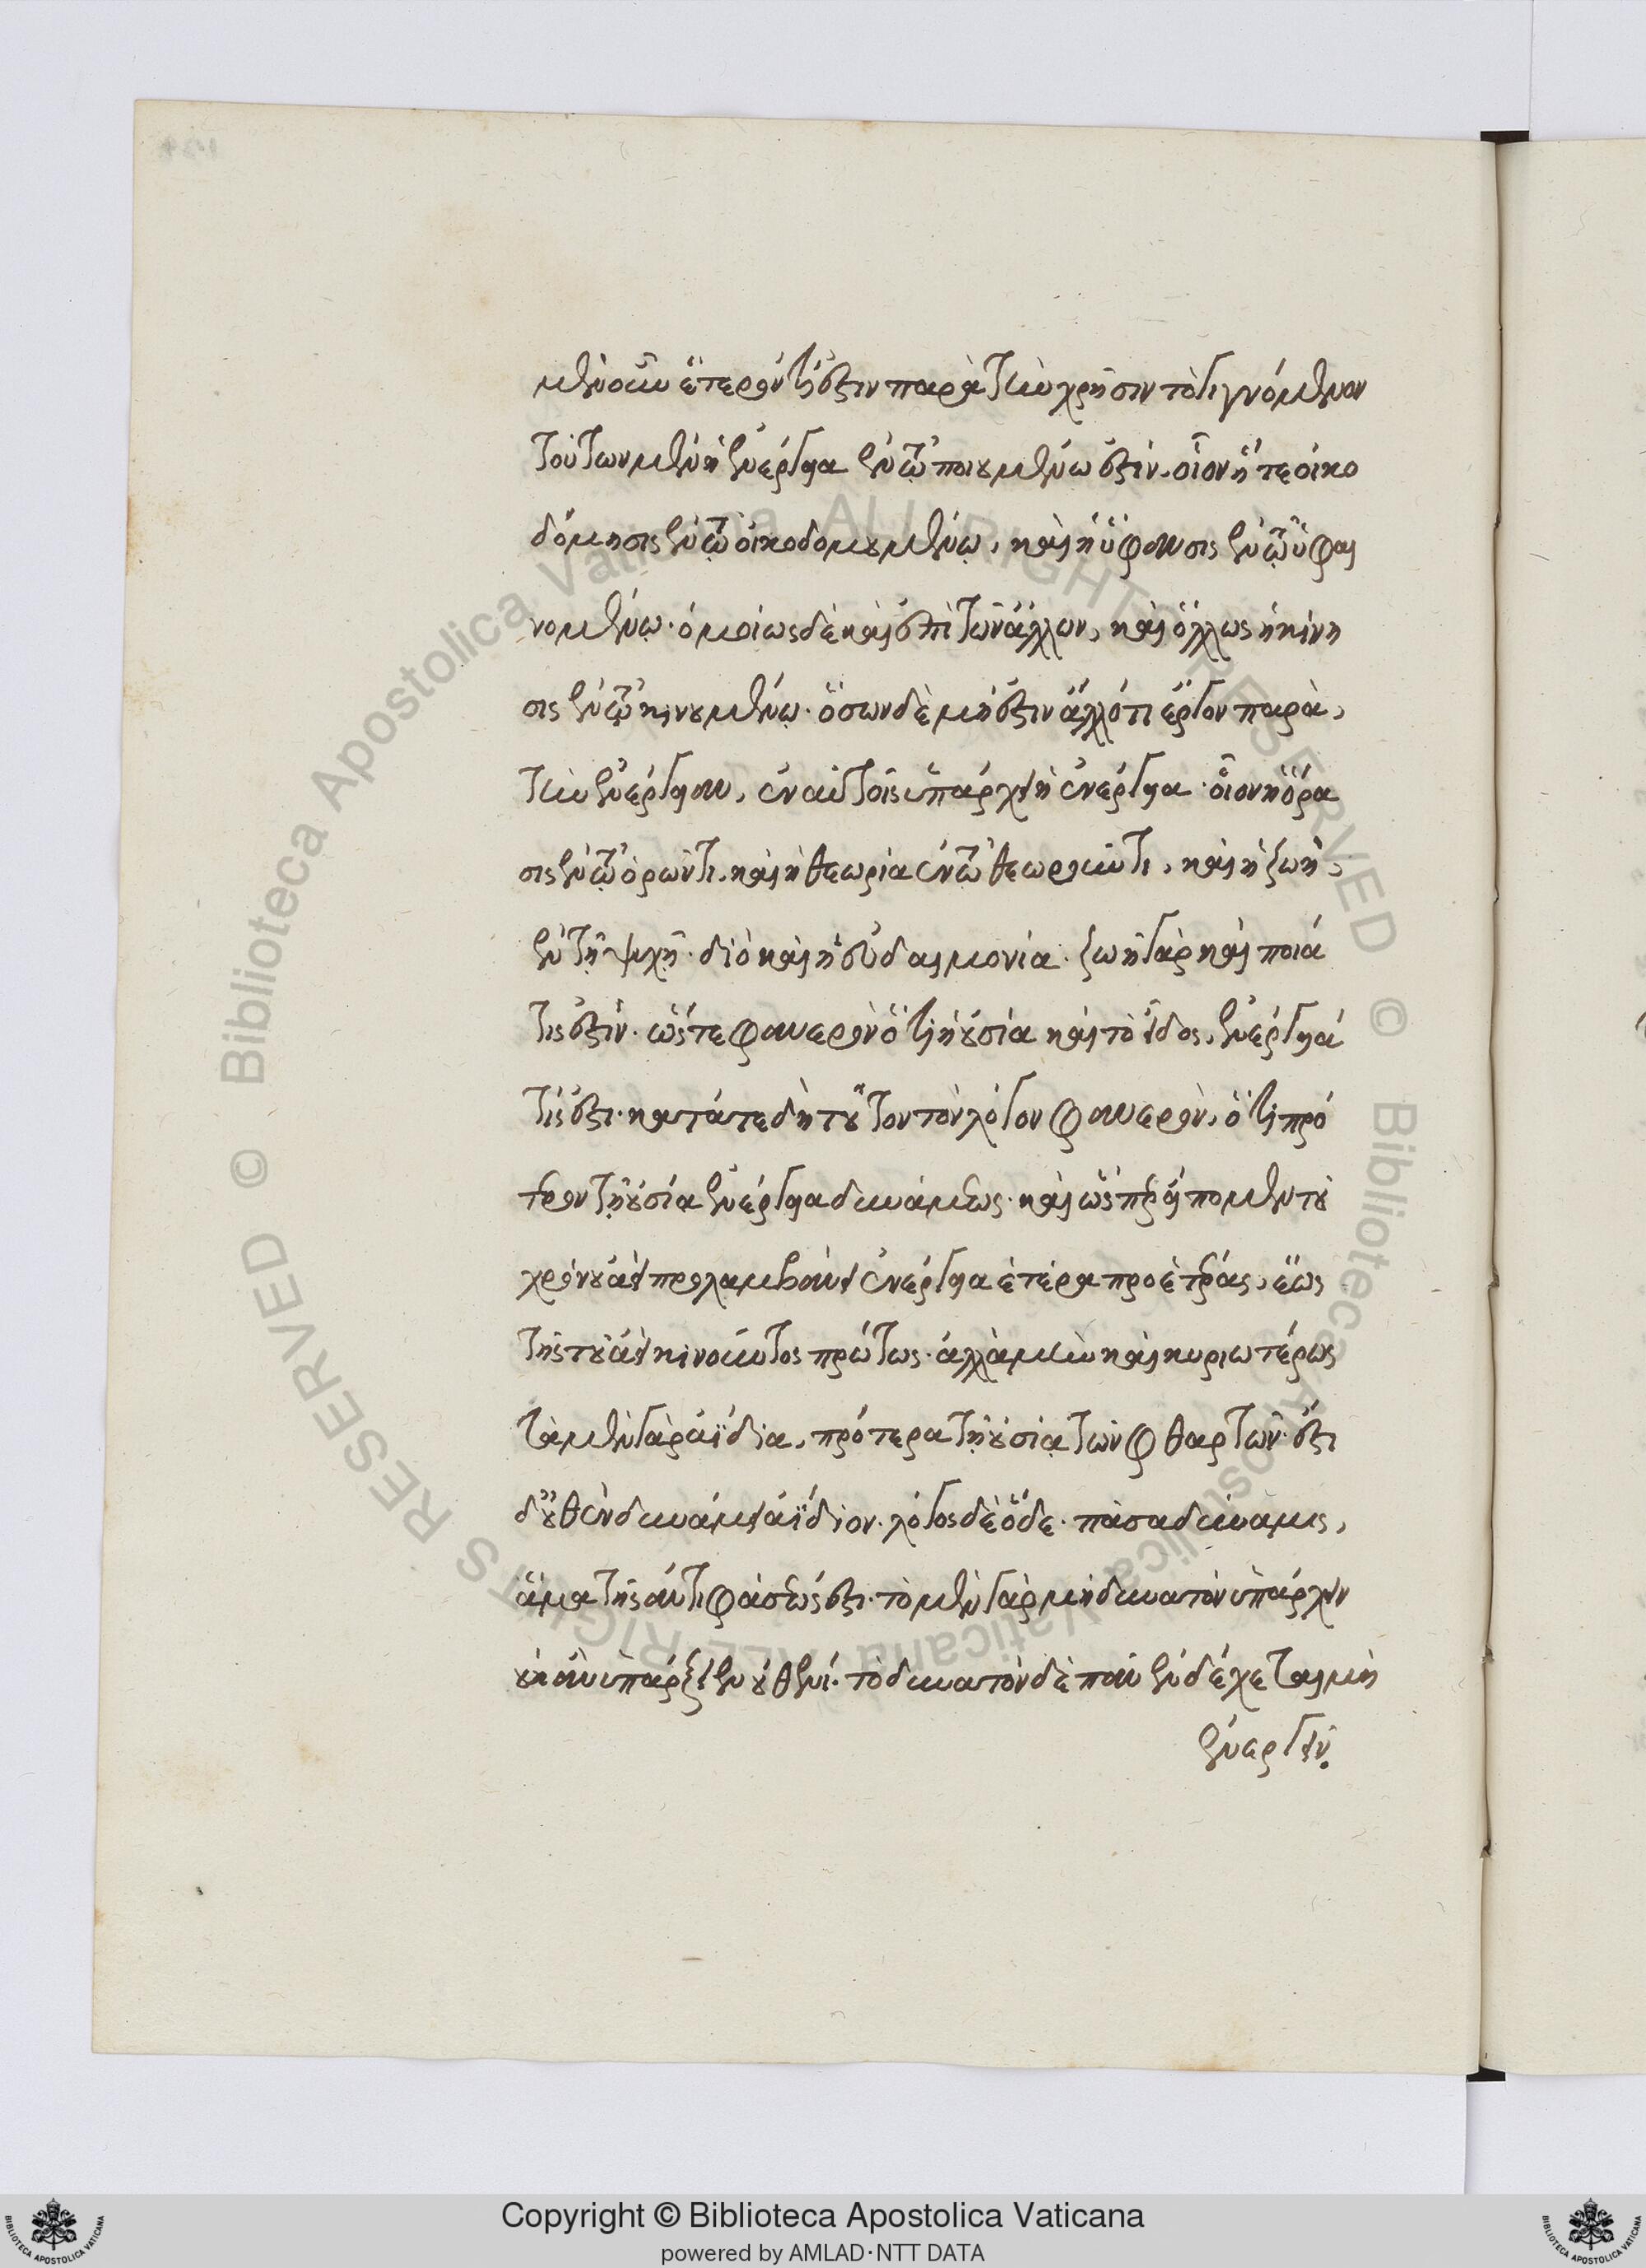 μὲν οὖν ἕτερόν τί ἐστιν παρὰ τὴν χρῆσιν τὸ γιγνόμενον
τούτων μὲν ἡ ἐνέργεια ἐν τῷ ποιουμένω ἐστίν. οἷον ἥ τε οἰκο
δόμησις ἐν τῷ οἰκοδομουμένῳ, καὶ ἡ ὕφανσις ἐν τῷ ὑφαι
νομένῳ. ὁμοίως δὲ καὶ ἐπὶ τῶν ἄλλων, καὶ ὅλλως ἡ κίνη
σις ἐν τῷ κινουμένῳ. ὅσων δὲ μή ἐστιν ἄλλό τι ἔργον παρὰ,
τὴν ἐνέργειαν, ἐν αὐτοῖς ὑπάρχει ἡ ἐνέργεια. οἷον ἡ ὅρα
σις ἐν τῷ ὁρῶντι. καὶ ἡ θεωρία ἐν τῷ θεωροῦντι, καὶ ἡ ζωὴ,
ἐν τῇ ψυχῇ. διὸ καὶ ἡ εὐδαιμονία. ζωὴ γὰρ καὶ ποιά
τις ἐστίν. ὥστε φανερὸν ὅτι ἡ οὐσία καὶ τὸ εἶδος, ἐνέργειά
τίς ἐστι. κατά τε δὴ τοῦτον τὸν λόγον φανερὸν, ὅτι πρό
τερον τῇ οὐσία ἐνέργεια δυνάμεως. καὶ ὥσπερ εἴπομεν τοῦ
χρόνου ἀεὶ προλαμβάνει ἐνέργεια ἑτέρα προ ἑτέρας, ἕως
τῆς τοῦ ἀεὶ κινοῦντος πρώτως. ἀλλὰ μὴν καὶ κυριωτέρως
τὰ μὲν γὰρ ἀΐδια, πρότερα τῇ οὐσίᾳ τῶν φθαρτῶν. ἔστι
δ' οὐθὲν δυνάμει ἀΐδιον. λόγος δὲ ὅδε. πᾶσα δύναμις,
ἅμα τῆς ἀντιφάσεώς ἐστι. τὸ μὲν γὰρ μὴ δυνατὸν ὑπάρχειν
οὐκ ἂν ὑπάρξειεν οὐθενί. τὸ δυνατὸν δὲ πᾶν ἐνδέχεται μὴ
ἐνεργεῖν.
Copyright © Biblioteca Apostolica Vaticana
powered by AMLAD·NTT DATA